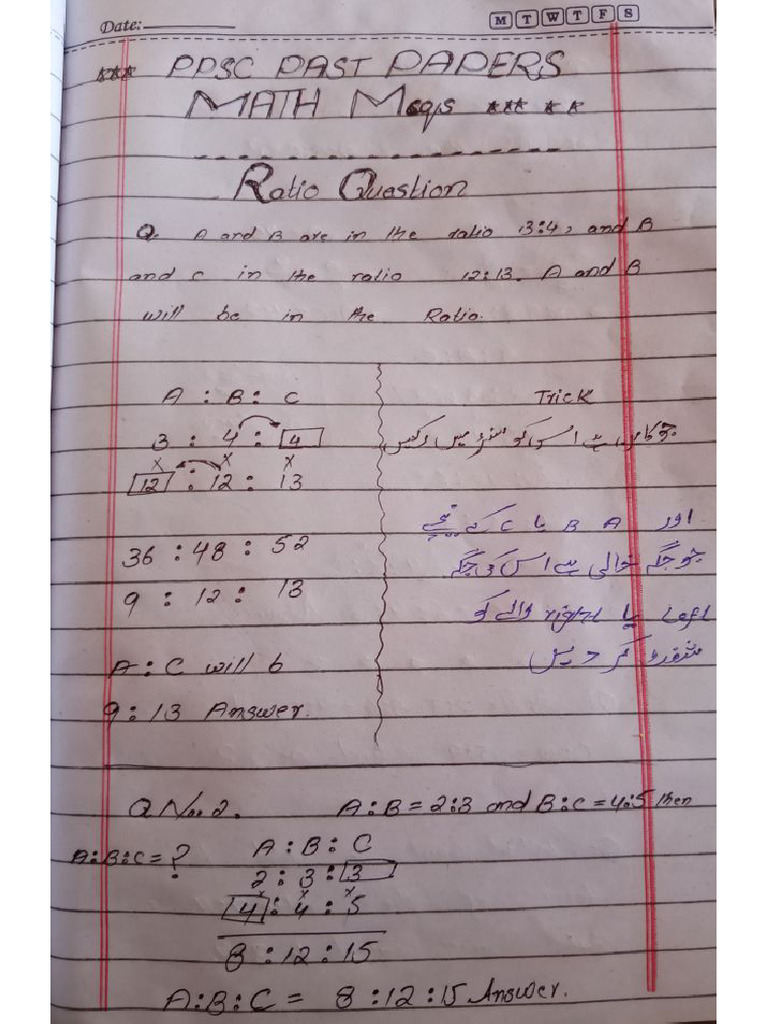 Date:
M T W T F S
*** PPSC PAST PAPERS
MATH Mcqs *** * *
Ratio Question
Q. A and B are in the ratio 13:4, and B
and C in the ratio 12:13. A and B
will be in the Ratio.
A : B : C
3 : 4 : 4
12 : 12 : 13
36 : 48 : 52
9 : 12 : 13
A : C will b
9 : 13 Answer.
Trick
اس کو سنٹر میں رکھیں
اور A B یا C کے نیچے
جو جگہ خالی ہے اس کی جگہ
Left یا right والے کو
کر دیں
Q No. 2. A:B=2:3 and B:C=4:5 then
A:B:C=?
A : B : C
2 : 3 : 3
4 : 4 : 5
8 : 12 : 15
A:B:C = 8:12:15 Answer.